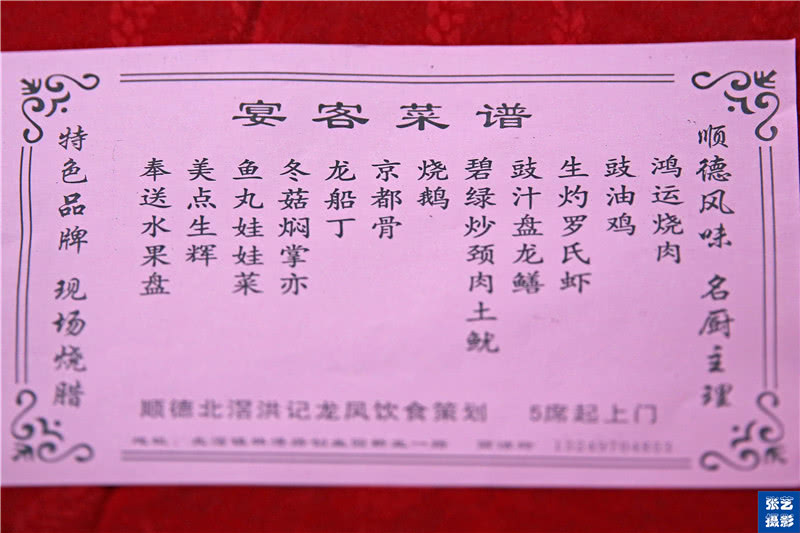 宴客菜谱
顺德风味 名厨主理
鸿运烧肉
豉油鸡
生灼罗氏虾
豉汁盘龙鳝
碧绿炒颈肉土鱿
烧鹅
京都骨
龙船丁
冬菇焖掌亦
鱼丸娃娃菜
美点生辉
奉送水果盘
特色品牌 现场烧腊
顺德北滘洪记龙凤饮食策划 5席起上门
张艺
摄影